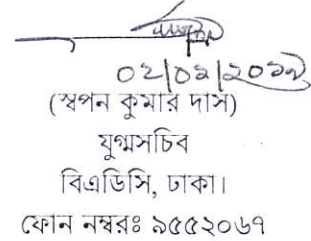 ০২/০৯/২০১৯
(স্বপন কুমার দাস)
যুগ্মসচিব
বিএডিসি, ঢাকা।
ফোন নম্বরঃ ৯৫৫২০৬৭